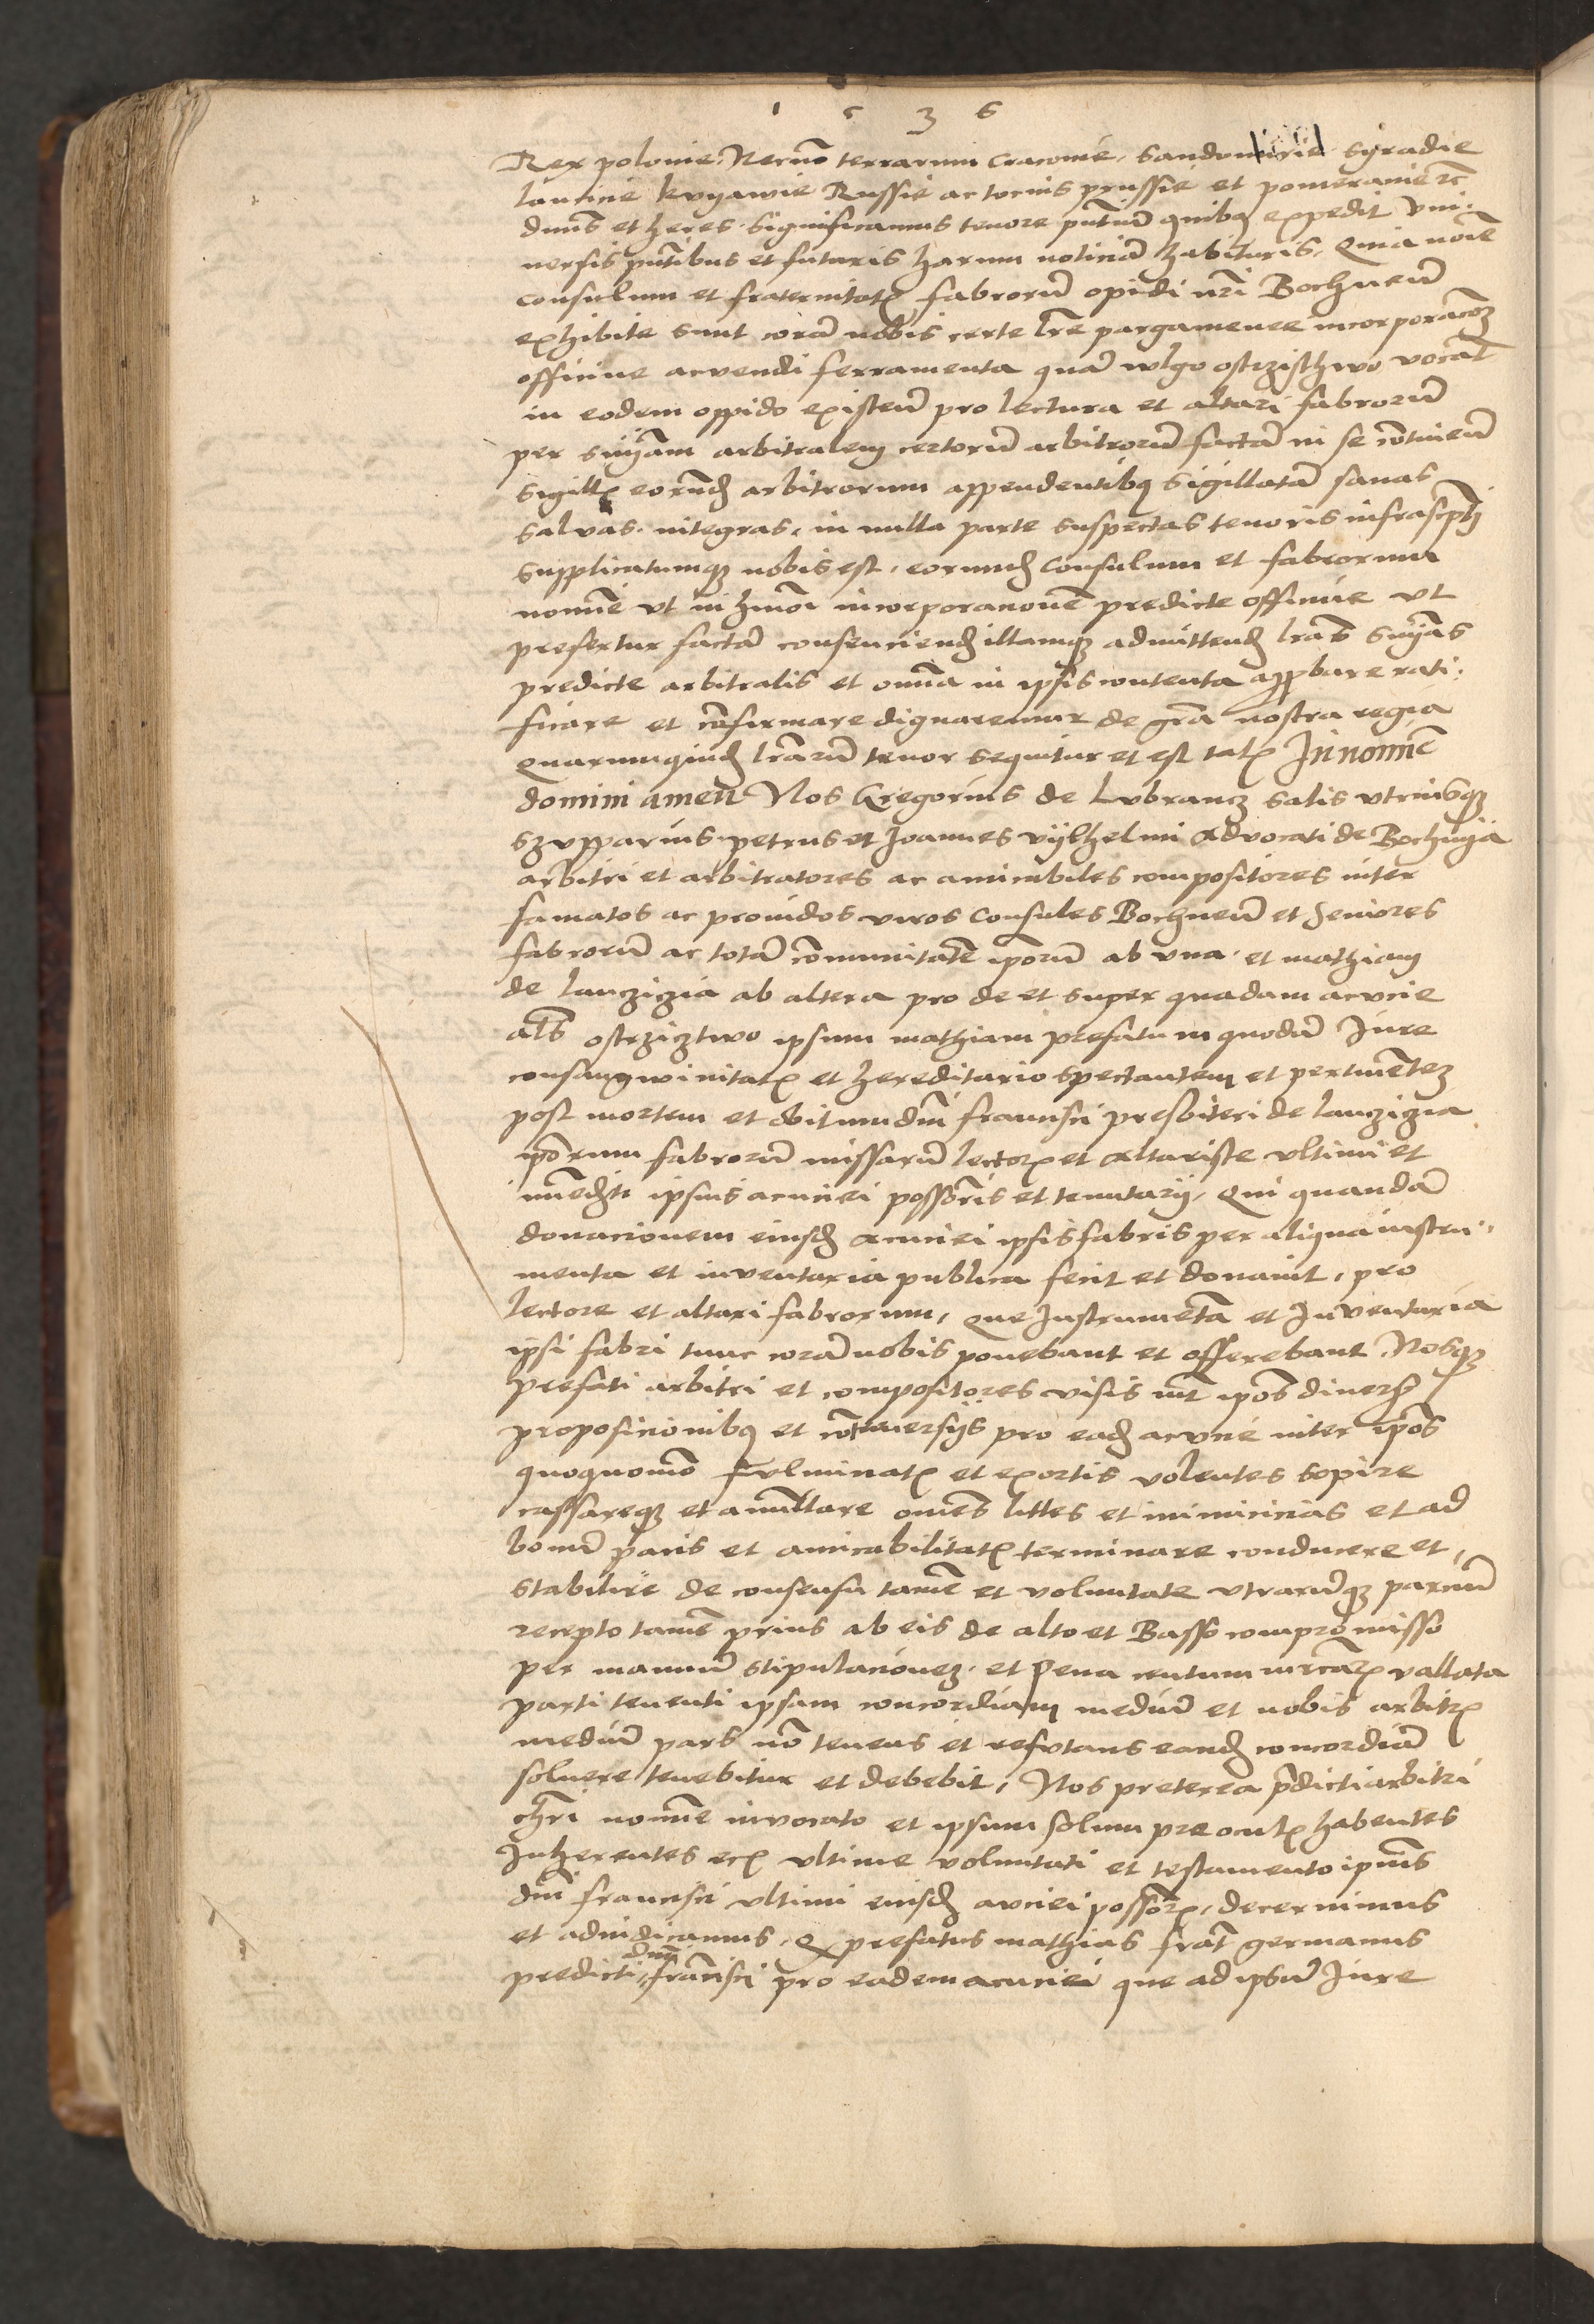 1 5 3 6
Rex polonie. Necnō terrarum Cracovie. Sandomirie Syradie
lancicie kuyawie Russie ac tocius prussie et pomeranie etc̄
dnūs et heres. Significamus tenore pn̄tium quibꝫ expedit vni:
uersis pn̄tibus et futuris harum noticiā habituris. Quia noīe
Consulum et fraternitatꝭ fabrorū opidi nr̄i Bochneñ
exhibite sunt corā nobis certe lr̄e pargamenee incorporacōeꝫ
officine acuendi ferramenta quā wlgo ostrzisthwo vocāt
in eodem oppido existeñ pro lectura et altari fabrorū
per sn̄yam arbitralem certorū arbitrorū factā in se cōtineñ
sigillꝭ eorundꝫ arbitrorum appendentibꝫ sigillatā sanas
salvas. integras. in nulla parte suspectas tenoris infrascpti
Supplicatumqꝫ nobis est. eorundꝫ Consulum et fabrorum
nomīe vt in hmōi incorporacionē predicte officine vt
prefertur factā consenciendꝫ illamqꝫ admittendꝫ lr̄as sn̄yās
predicte arbitralis et omīa in ipsis contenta approbare rati:
ficare et cōfirmare dignaremur de gr̄a nostra regia
quarumquidꝫ lr̄arū tenor sequitur et est talꝭ In nomīe
domini amen Nos Gregorius de Lubrancz salis vtriusqꝫ
szupparius. petrus et Joannes vylhelmi Advocati de Bochnya
arbitri et arbitratores ac amicabiles compositores inter
famatos ac prouidos viros Consules Bochneñ et Seniores
fabrorū ac totā cōmunitatē ipōrū ab vna. et mathiam
de lanczicza ab altera pro de et super quadam acucie
als̄ ostrzicztwo ipsum mathiam prefatum quodā Jure
consangwinitatꝭ et hereditario spectantem et pertinētēꝫ
post mortem et obitum dn̄i francisci presbiteri de lanczicza
ipōrum fabrorū missarū lectorꝭ et altariste vltimi et
im̄ediati ipsius acuciei possōris et tenutarij. Qui quandā
donacionem eiusdꝫ acuciei ipsis fabris per aliqua instru:
menta et inventaria publica fecit et donavit. pro
lectore et altari fabrorum. que Instrumēta et Inventaria
ipsi fabri tunc corā nobis ponebant et offerebant. Nosqꝫ
prefati arbitri et compositores visis int̄ ipōs diversꝭ
proposicionibꝫ et cōtrauersijs pro eadꝫ acucie inter ipōs
quoquomōo fulminatꝭ et exortis volentes sopire
cassareqꝫ et anullare omēs littes et inimicicias et ad
bonū pacis et amicabilitatꝭ terminare conducere et
stabilire de consensu tamē et voluntate vtrarūqꝫ parciū
recepto tamē prius ab eis de alto et Basso compromisso
per manuū stipulacionēꝫ. et pena centum mr̄carꝭ vallata
parti tenenti ipsam concordiam mediū et nobis arbitrꝭ
mediū pars nō tenens et refutans eandꝫ concordiā
soluere tenebitur et debebit. Nos preterea pr̄dicti arbitri
chr̄i nomīe invocato et ipsum solum pre oculꝭ habentes
Inherentes ecꝭ vltime voluntati et testamento ipīus
dn̄i francisci vltimi eiusdꝫ acuciei possōrꝭ. decernimus
et adiudicamus. Qꝫ prefatus mathias frāt germanus
predicti dn̄i francisci pro eadem acuciei que ad ipsū Jure